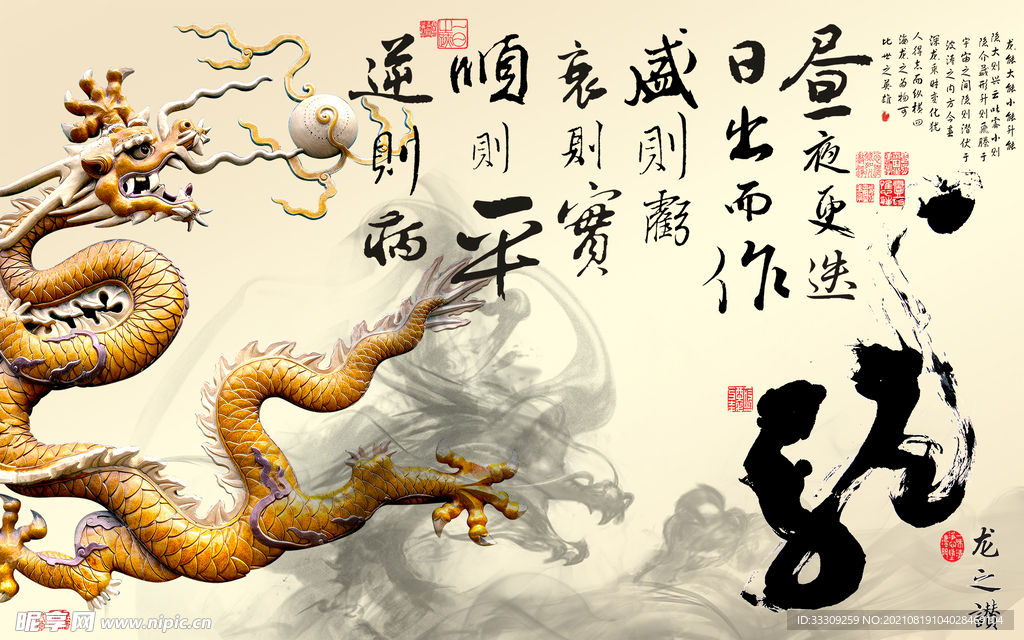 龙能大能小能升能
隐大则兴云吐雾小则
隐介藏形升则飞腾于
宇宙之间隐则潜伏于
波涛之内方今春
深龙乘时变化犹
人得志而纵横四
海龙之为物可
比世之英雄
昼夜更迭
日出而作
盛則虧
衰則實
順則平
逆則病
龙之讃
昵享网 www.nipic.cn
ID:33309259 NO:20210819104028469104